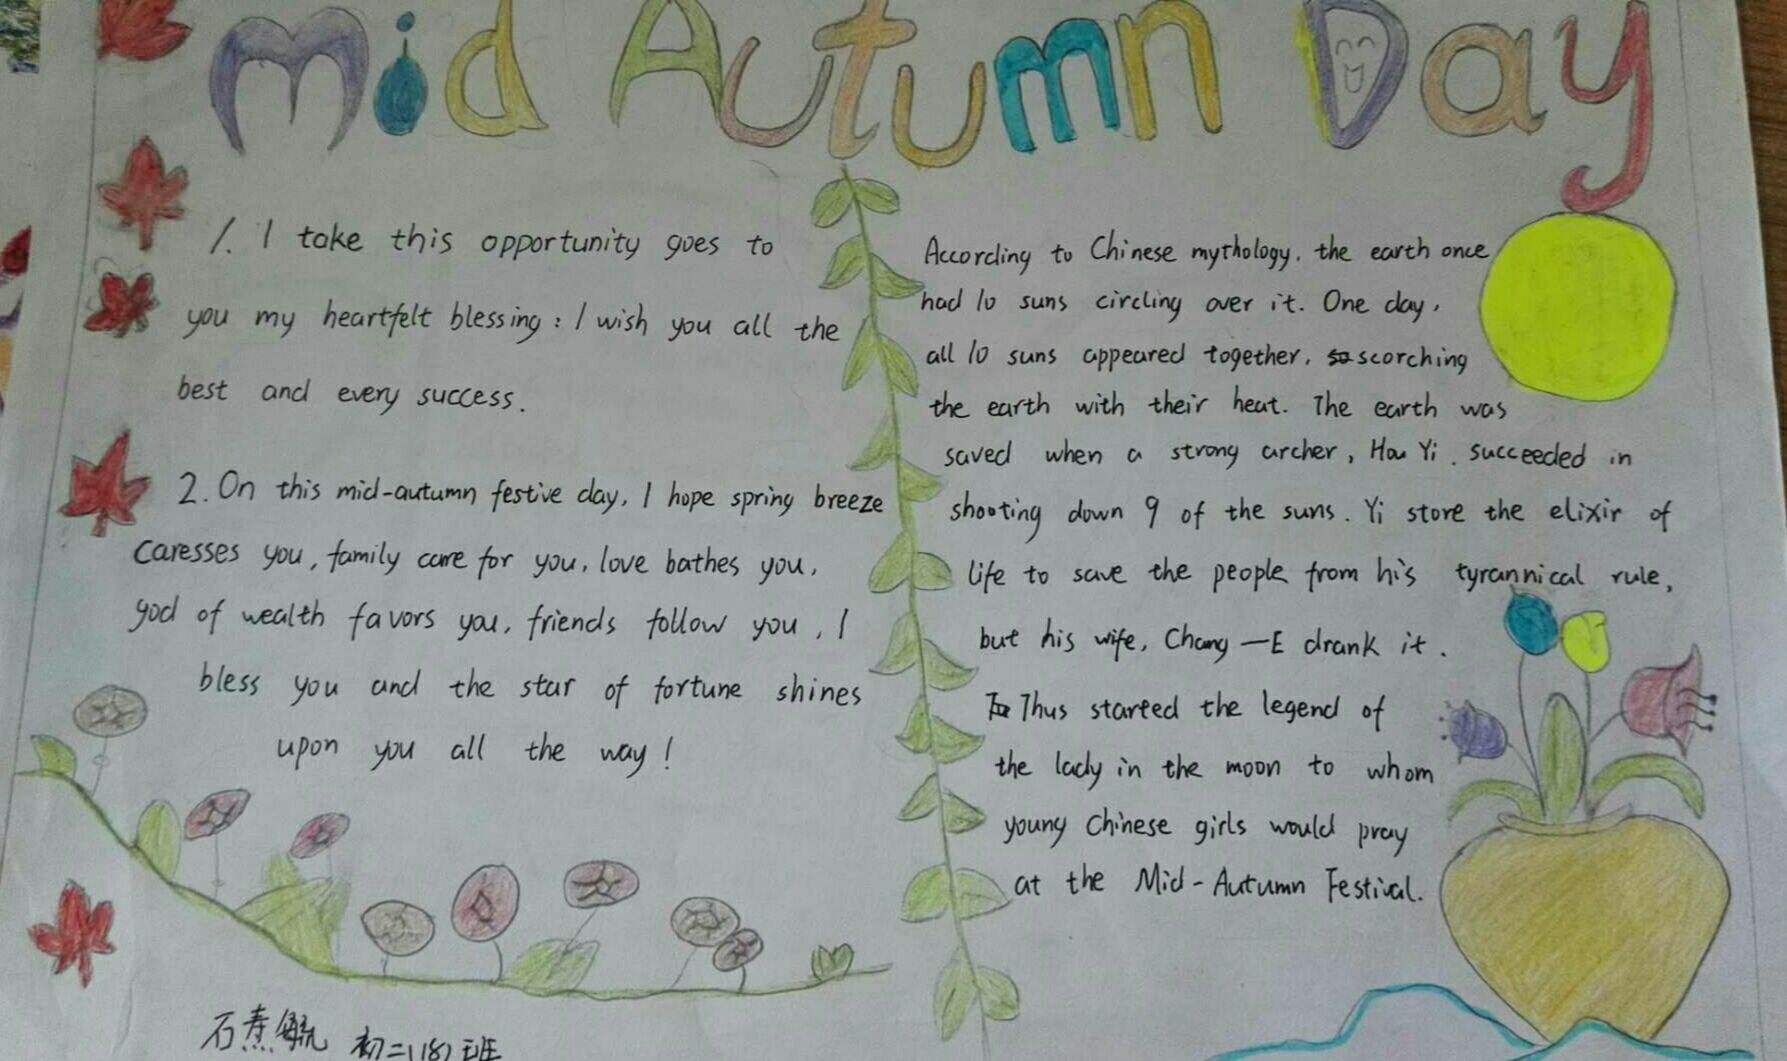 Mid Autumn Day
1. I take this opportunity goes to
you my heartfelt blessing: I wish you all the
best and every success.
2. On this mid-autumn festive day, I hope spring breeze
caresses you, family care for you, love bathes you,
god of wealth favors you, friends follow you, I
bless you and the star of fortune shines
upon you all the way!
According to Chinese mythology, the earth once
had 10 suns circling over it. One day,
all 10 suns appeared together, scorching
the earth with their heat. The earth was
saved when a strong archer, Hou Yi, succeeded in
shooting down 9 of the suns. Yi store the elixir of
life to save the people from his tyrannical rule,
but his wife, Chang-E drank it.
Thus started the legend of
the lady in the moon to whom
young Chinese girls would pray
at the Mid-Autumn Festival.
石 毓 初二(18)班